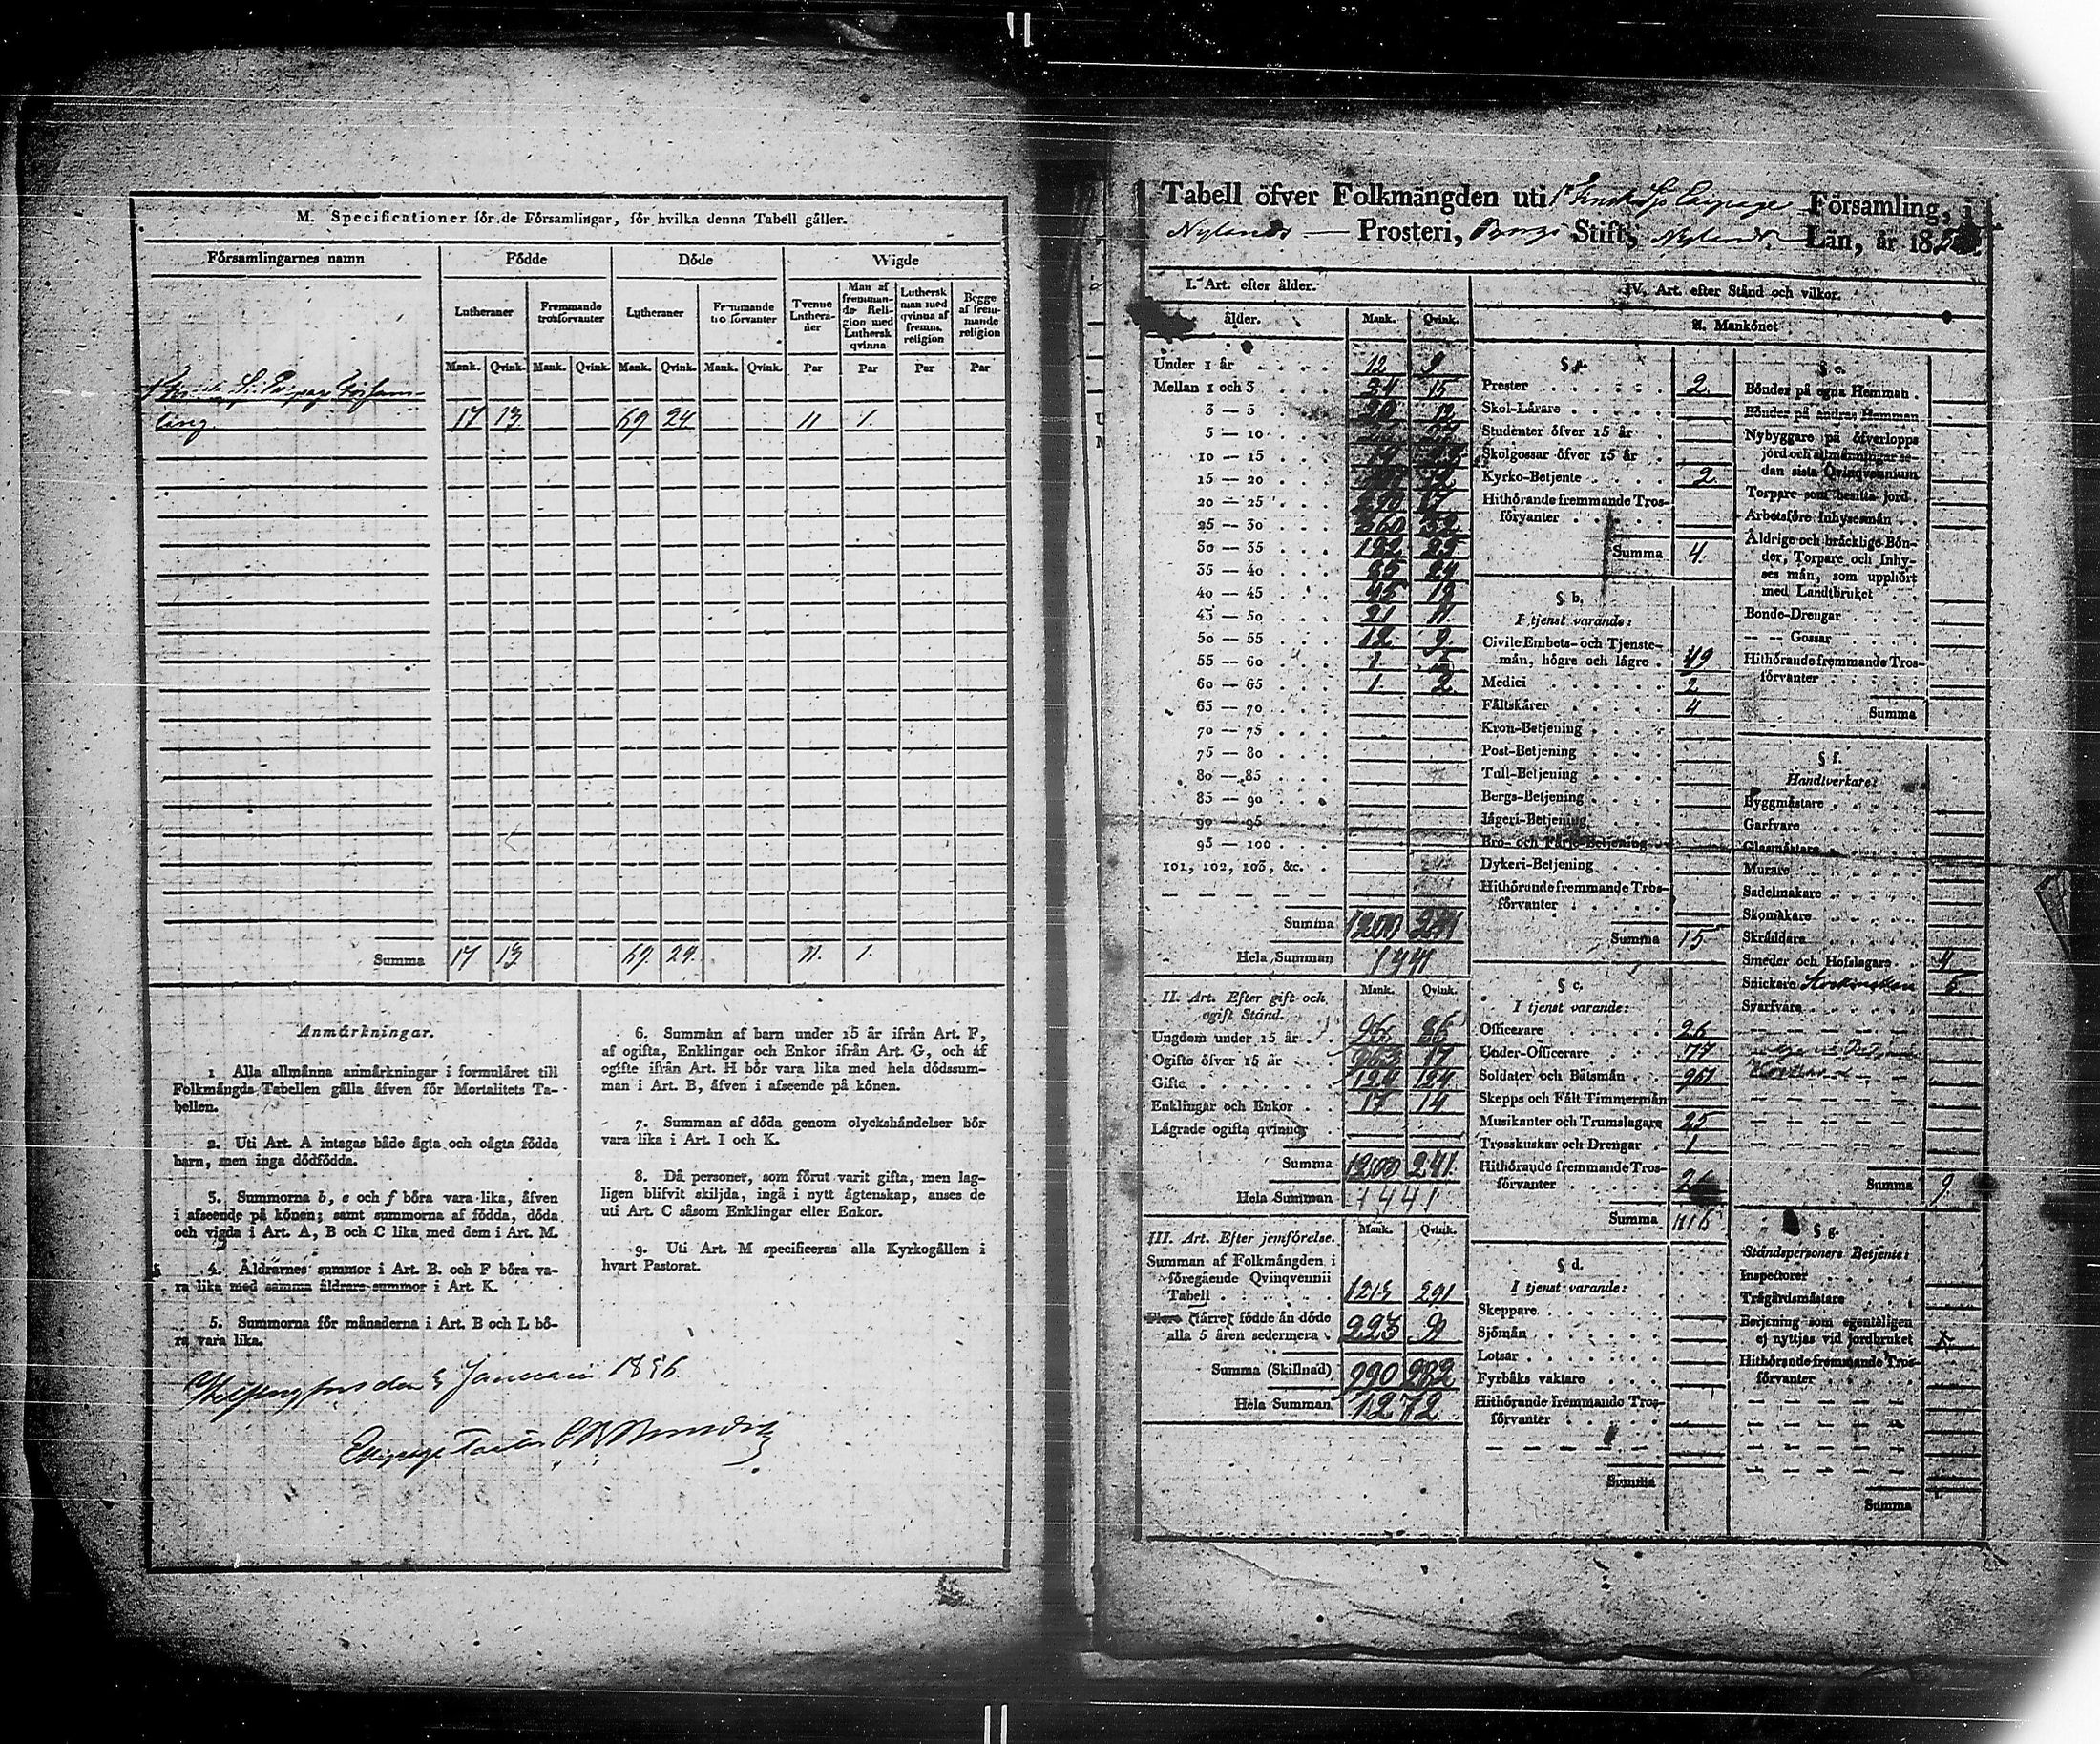 M. Specificationer för de Församlingar, för hvilka denna Tabell gäller.
Församlingarnes namn
Födde
Döde
Wigde
Lutheraner
Fremmande trosförvanter
Lutheraner
Fremmande trosförvanter
Tvenne Lutheraner
Man af fremmande Religion med Luthersk qvinna
Luthersk man med qvinna af fremm. religion
Begge af fremmande religion
Mank. Qvink. Mank. Qvink. Mank. Qvink. Mank. Qvink. Par Par Par Par
ling. 17 13 69 24 11 1.
Summa 17 13 69 24 11. 1.
Anmärkningar.
1 Alla allmänna anmärkningar i formuläret till
Folkmängds Tabellen gälla äfven för Mortalitets Ta-
bellen.
2. Uti Art. A intagas både ägta och oägta födda
barn, men inga dödfödda.
3. Summorna b, e och f böra vara lika, äfven
i afseende på könen; samt summorna af födda, döda
och vigda i Art. A, B och C lika med dem i Art. M.
4. Åldrarnes summor i Art. B. och F böra va-
ra lika med samma åldrars summor i Art. K.
5. Summorna för månaderna i Art. B och L bö-
ra vara lika.
6. Summan af barn under 15 år ifrån Art. F,
af ogifta, Enklingar och Enkor ifrån Art. G, och af
ogifte ifrån Art. H bör vara lika med hela dödssum-
man i Art. B, äfven i afseende på könen.
7. Summan af döda genom olyckshändelser bör
vara lika i Art. I och K.
8. Då personer, som förut varit gifta, men lag-
ligen blifvit skiljda, ingå i nytt ägtenskap, anses de
uti Art. C såsom Enklingar eller Enkor.
9. Uti Art. M specificeras alla Kyrkogällen i
hvart Pastorat.
Helsingfors den 3 Januari 1856
Tabell öfver Folkmängden uti Församling, i
Nylands — Prosteri, Borgo Stift, Nylands Län, år 185
I. Art. efter ålder.
ålder. Mank. Qvink.
Under 1 år 12 9
Mellan 1 och 3 15
3 — 5
5 — 10
10 — 15
15 — 20
20 — 25
25 — 30 360 32
30 — 35
35 — 40
40 — 45 45 13
45 — 50 21 11.
50 — 55 12 9
55 — 60 1
60 — 65 1. 2
65 — 70
70 — 75
75 — 80
80 — 85
85 — 90
90 — 95
95 — 100
101, 102, 103, &c.
Summa 1200 241
Hela Summan 1441
II. Art. Efter gift och
ogift Stånd. Mank. Qvink.
Ungdom under 15 år 96 86
Ogifte öfver 15 år 963 17
Gifte 124 124
Enklingar och Enkor 17 14
Lägrade ogifta qvinnor
Summa 1200 241.
Hela Summan 1441
III. Art. Efter jemförelse. Mank. Qvink.
Summan af Folkmängden i
föregående Qvinqvennii
Tabell 1213 291
Flere (färre) födde än döde
alla 5 åren sedermera 223 9
Summa (Skillnad) 990 282
Hela Summan 1272
IV. Art. efter Stånd och vilkor.
A. Mankönet
§ a.
Prester 2
Skol-Lärare
Studenter öfver 15 år
Skolgossar öfver 15 år
Kyrko-Betjente 2
Hithörande fremmande Tros-
förvanter
Summa 4.
§ b.
I tjenst varande:
Civile Embets- och Tjenste-
män, högre och lägre
Medici 2
Fältskärer 4
Kron-Betjening
Post-Betjening
Tull-Betjening
Bergs-Betjening
Jägeri-Betjening
Bro- och Färje-Betjening
Dykeri-Betjening
Hithörande fremmande Tros-
förvanter
Summa 15
§ c.
I tjenst varande:
Officerare 26
Under-Officerare 77
Soldater och Båtsmän 961
Skepps och Fält Timmermän
Musikanter och Trumslagare 25
Trosskuskar och Drengar 1
Hithörande fremmande Tros-
förvanter
Summa 1116
§ d.
I tjenst varande:
Skeppare
Sjömän
Lotsar
Fyrbåks vaktare
Hithörande fremmande Tros-
förvanter
Summa
§ e.
Bönder på egna Hemman
Bönder på andras Hemman
Nybyggare på öfverlopps
jord och allmänningar se-
dan sista Qvinqvennium
Torpare som besitta jord
Arbetsföre Inhysesmän
Åldrige och bräcklige Bön-
der, Torpare och Inhy-
ses män, som upphört
med Landtbruket
Bonde-Drengar
— — Gossar
Hithörande fremmande Tros-
förvanter
Summa
§ f.
Handtverkare:
Byggmästare
Garfvare
Glasmästare
Murare
Sadelmakare
Skomakare
Skräddare
Smeder och Hofslagare 4
Snickare
Svarfvare
Summa 9
§ g.
Ståndspersoners Betjente:
Inspectorer
Trägårdsmästare
Betjening som egenteligen
ej nyttjas vid jordbruket
Hithörande fremmande Tros-
förvanter
Summa